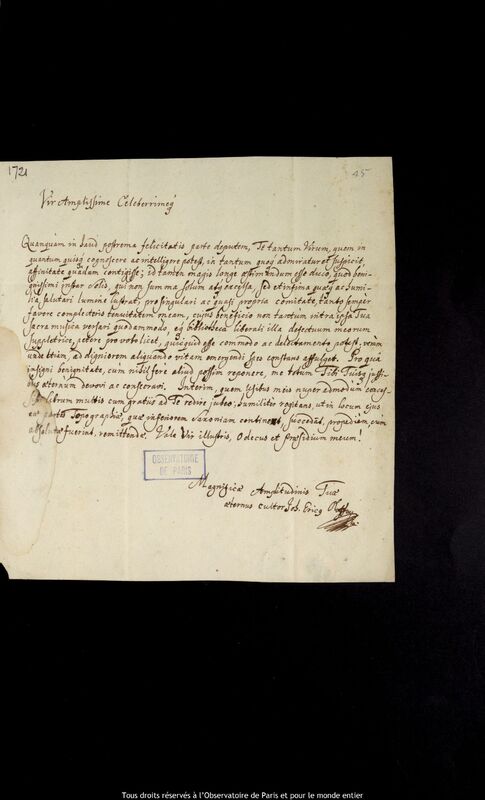 1721
45
Vir Amplissime Celeberrimeq
Quanquam in haud postrema felicitatis parte deputem, Te tantum Virum, quem in
quantum quisq cognoscere ac intelligere potest, in tantum quoq admiratur et suspicit,
affinitate quadam contigisse; id tamen magis longe æstimandum esse duco, quod beni-
gnissimi instar Solis, qui non summa solum atq excelsa, sed etiam ima quoq ac humi-
lia, salutari lumine lustrat, pro singulari ac quasi propria comitate, tanto semper
favore complecteris tenuitatem meam, cujus beneficio non tantum intra ipsa Tua
sacra musica versari quodammodo, eq bibliotheca liberali illa defectuum meorum
suppletrice, petere pro voto licet, quicquid esse commodo ac delectamento potest; verum
unde etiam, ad digniorem aliquando vitam emergendi spes constans affulget. Pro qua
insigni benignitate, cum nihil fere aliud possim reponere, me totum Tibi Tuisq jussi-
bus æternum devovi ac consecravi. Interim, quem usibus meis nuper admodum conces-
librum multis cum gratiis ad Te redire jubeo; humiliter rogitans, ut in locum ejus
ea pars Topographiæ, quæ inferiorem Saxoniam continent, succedat, propediem, cum
absoluta fuerint, remittendæ. Vale Vir illustris, O decus et præsidium meum!
OBSERVATOIRE
DE PARIS
Magnificæ Amplitudinis Tuæ
æternus cultor Joh. Ericq
Tous droits réservés à l'Observatoire de Paris et pour le monde entier